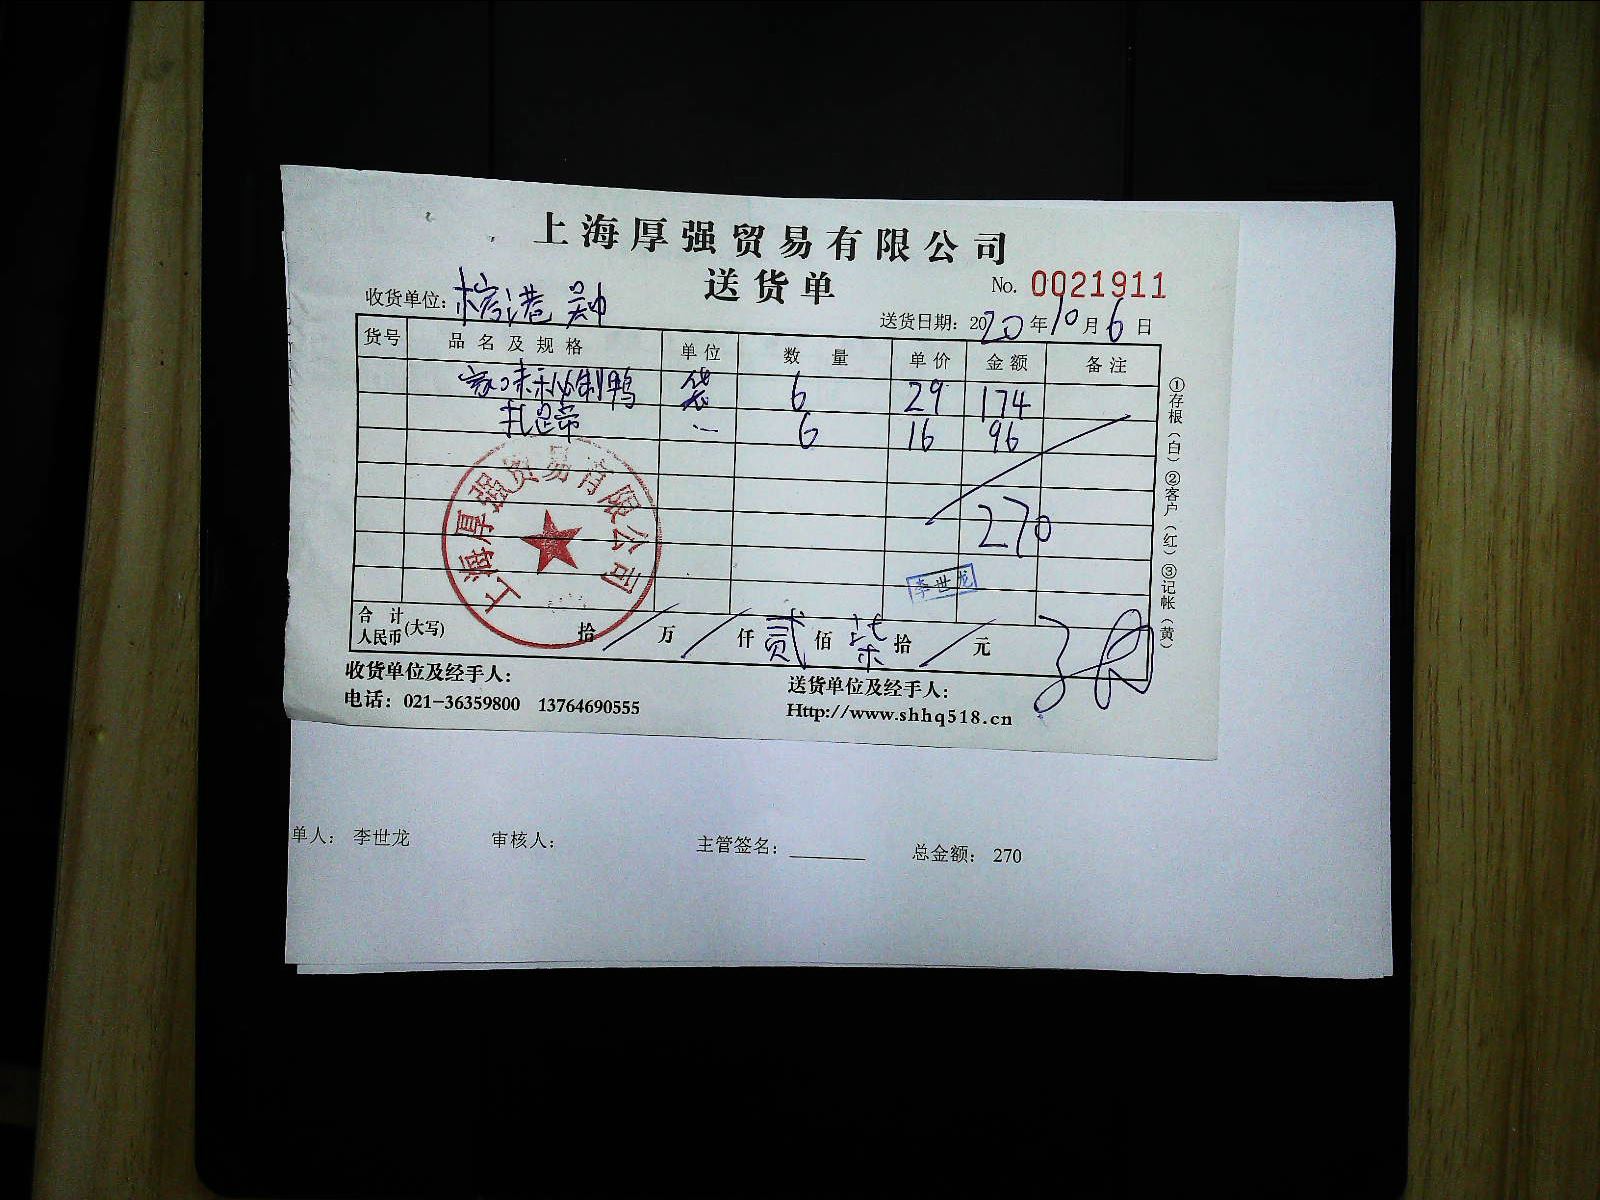 上海厚强贸易有限公司
送货单
No. 0021911
收货单位：
送货日期：2020年10月6日
货号 品名及规格 单位 数量 单价 金额 备注
家味秘制鸭 袋 6 29 174
扎蹄 6 16 96
270
上海厚强贸易有限公司
李世龙
合计人民币(大写) 拾 / 万 / 仟 贰 佰 柒 拾 / 元
收货单位及经手人：
送货单位及经手人：
电话：021-36359800 13764690555
Http://www.shhq518.cn
①存根（白）②客户（红）③记帐（黄）
单人： 李世龙 审核人： 主管签名：_______ 总金额： 270